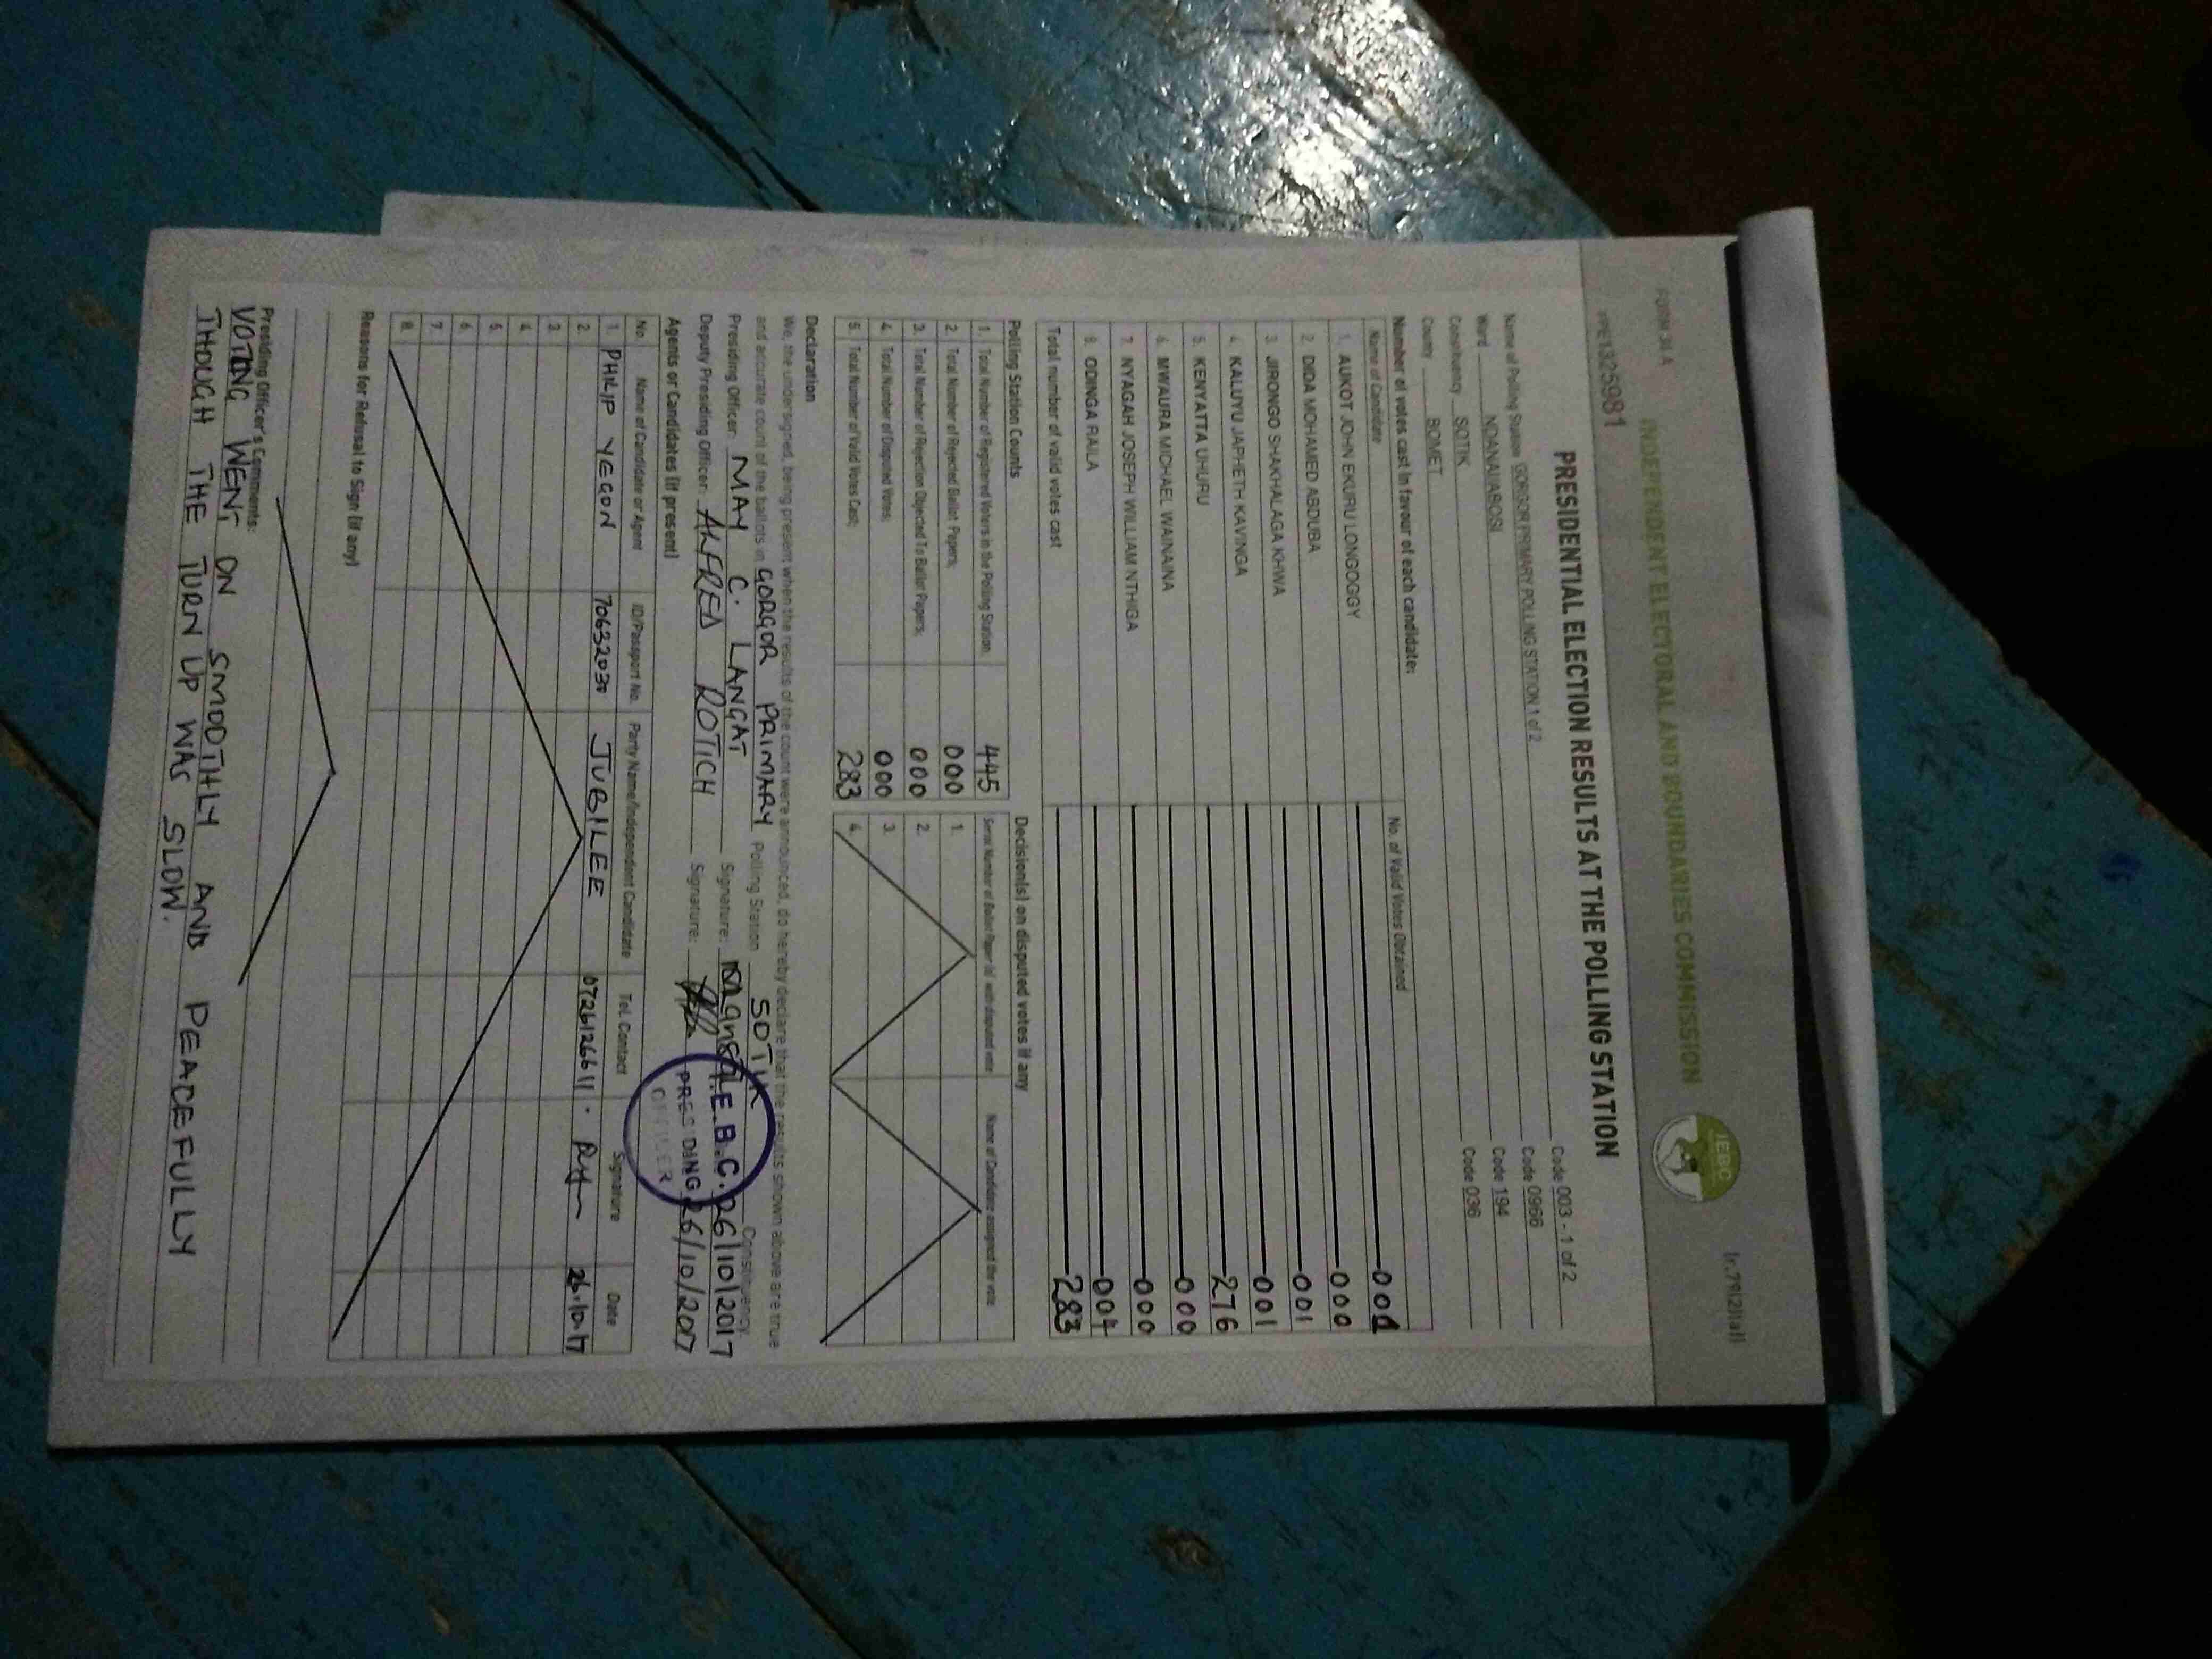 FORM 34 A
(r.79(2)(a))
INDEPENDENT ELECTORAL AND BOUNDARIES COMMISSION
IEBC
PPE1325981
PRESIDENTIAL ELECTION RESULTS AT THE POLLING STATION
Name of Polling Station GORGOR PRIMARY POLLING STATION 1 of 2 Code 003 - 1 of 2
Ward NDANAI/ABOSI Code 0966
Constituency SOTIK Code 194
County BOMET Code 036
Number of votes cast in favour of each candidate:
Name of Candidate No. of Valid Votes Obtained
1. AUKOT JOHN EKURU LONGOGGY 001
2. DIDA MOHAMED ABDUBA 000
3. JIRONGO SHAKHALAGA KHWA 001
4. KALUYU JAPHETH KAVINGA 001
5. KENYATTA UHURU 276
6. MWAURA MICHAEL WAINAINA 000
7. NYAGAH JOSEPH WILLIAM NTHIGA 000
8. ODINGA RAILA 004
Total number of valid votes cast 283
Polling Station Counts Decision(s) on disputed votes if any
1. Total Number of Registered Voters in the Polling Station; 445 Serial Number of Ballot Paper (s) with disputed vote Name of Candidate assigned the vote
2. Total Number of Rejected Ballot Papers; 000 1.
3. Total Number of Rejection Objected To Ballot Papers; 000 2.
4. Total Number of Disputed Votes; 000 3.
5. Total Number of Valid Votes Cast; 283 4.
Declaration
We, the undersigned, being present when the results of the count were announced, do hereby declare that the results shown above are true
and accurate count of the ballots in GORGOR PRIMARY Polling Station SOTIK Constituency
Presiding Officer: MAY C. LANGAT Signature: 26/10/2017
Deputy Presiding Officer: ALFRED ROTICH Signature: 26/10/2017
I.E.B.C.
PRESIDING
OFFICER
Agents or Candidates (if present)
No. Name of Candidate or Agent ID/Passport No. Party Name/Independent Candidate Tel. Contact Signature Date
1. PHILIP YEGON 70632030 JUBILEE 0726126611. 26.10.17
2.
3.
4.
5.
6.
7.
8.
Reasons for Refusal to Sign (if any)
Presiding Officer's Comments:
VOTING WENT ON SMOOTHLY AND PEACEFULLY
THOUGH THE TURN UP WAS SLOW.